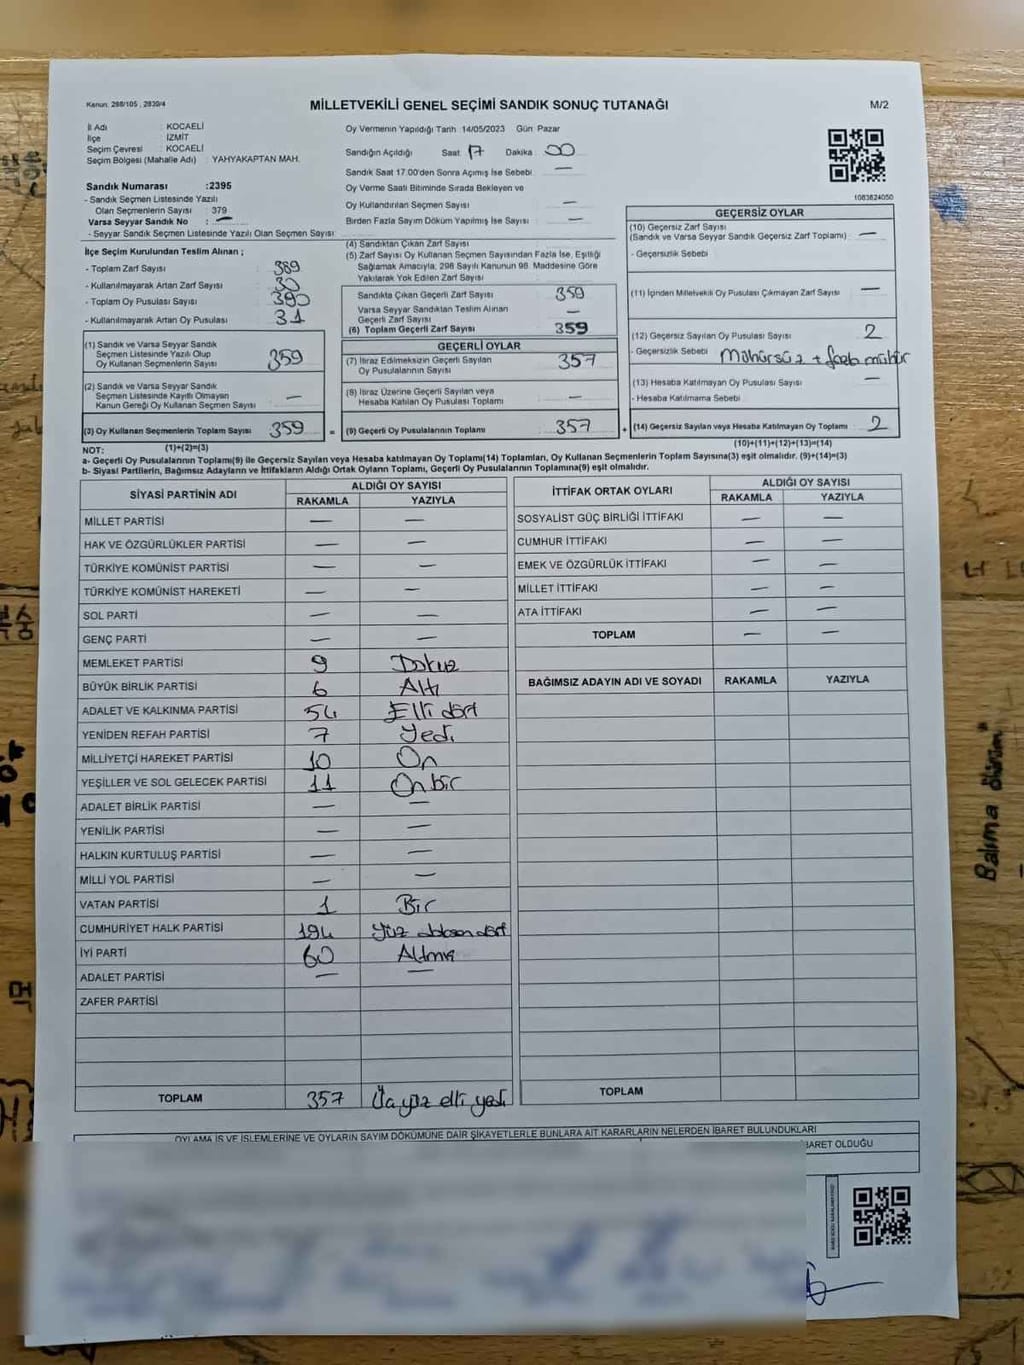 Kanun. 298/105 , 2839/4
MİLLETVEKİLİ GENEL SEÇİMİ SANDIK SONUÇ TUTANAĞI
M/2
İl Adı : KOCAELİ
İlçe : İZMİT
Seçim Çevresi : KOCAELİ
Seçim Bölgesi (Mahalle Adı) : YAHYAKAPTAN MAH.
Sandık Numarası :2395
- Sandık Seçmen Listesinde Yazılı
Olan Seçmenlerin Sayısı : 379
Varsa Seyyar Sandık No : —
- Seyyar Sandık Seçmen Listesinde Yazılı Olan Seçmen Sayısı :
İlçe Seçim Kurulundan Teslim Alınan ;
- Toplam Zarf Sayısı : 389
- Kullanılmayarak Artan Zarf Sayısı : 30
- Toplam Oy Pusulası Sayısı : 390
- Kullanılmayarak Artan Oy Pusulası : 31
(1) Sandık ve Varsa Seyyar Sandık
Seçmen Listesinde Yazılı Olup
Oy Kullanan Seçmenlerin Sayısı : 359
(2) Sandık ve Varsa Seyyar Sandık
Seçmen Listesinde Kayıtlı Olmayan
Kanun Gereği Oy Kullanan Seçmen Sayısı : —
(3) Oy Kullanan Seçmenlerin Toplam Sayısı : 359 =
Oy Vermenin Yapıldığı Tarih 14/05/2023 Gün Pazar
Sandığın Açıldığı Saat 17 Dakika 00
Sandık Saat 17.00'den Sonra Açımış İse Sebebi : —
Oy Verme Saati Bitiminde Sırada Bekleyen ve
Oy Kullandırılan Seçmen Sayısı : —
Birden Fazla Sayım Döküm Yapılmış İse Sayısı : —
(4) Sandıktan Çıkan Zarf Sayısı :
(5) Zarf Sayısı Oy Kullanan Seçmen Sayısından Fazla İse, Eşitliği
Sağlamak Amacıyla, 298 Sayılı Kanunun 98. Maddesine Göre
Yakılarak Yok Edilen Zarf Sayısı :
Sandıkta Çıkan Geçerli Zarf Sayısı : 359
Varsa Seyyar Sandıktan Teslim Alınan
Geçerli Zarf Sayısı : —
(6) Toplam Geçerli Zarf Sayısı : 359
GEÇERLİ OYLAR
(7) İtiraz Edilmeksizin Geçerli Sayılan
Oy Pusulalarının Sayısı : 357
(8) İtiraz Üzerine Geçerli Sayılan veya
Hesaba Katılan Oy Pusulası Toplamı : —
(9) Geçerli Oy Pusulalarının Toplamı : 357 +
1083824050
GEÇERSİZ OYLAR
(10) Geçersiz Zarf Sayısı
(Sandık ve Varsa Seyyar Sandık Geçersiz Zarf Toplamı) : —
- Geçersizlik Sebebi :
(11) İçinden Milletvekili Oy Pusulası Çıkmayan Zarf Sayısı : —
(12) Geçersiz Sayılan Oy Pusulası Sayısı : 2
- Geçersizlik Sebebi : Mühürsüz + fazla mühür
(13) Hesaba Katılmayan Oy Pusulası Sayısı : —
- Hesaba Katılmama Sebebi :
(14) Geçersiz Sayılan veya Hesaba Katılmayan Oy Toplamı : 2
NOT: (1)+(2)=(3)
(10)+(11)+(12)+(13)=(14)
a- Geçerli Oy Pusulalarının Toplamı(9) ile Geçersiz Sayılan veya Hesaba katılmayan Oy Toplamı(14) Toplamları, Oy Kullanan Seçmenlerin Toplam Sayısına(3) eşit olmalıdır. (9)+(14)=(3)
b- Siyasi Partilerin, Bağımsız Adayların ve İttifakların Aldığı Ortak Oyların Toplamı, Geçerli Oy Pusulalarının Toplamına(9) eşit olmalıdır.
SİYASİ PARTİNİN ADI ALDIĞI OY SAYISI
RAKAMLA YAZIYLA
MİLLET PARTİSİ — —
HAK VE ÖZGÜRLÜKLER PARTİSİ — —
TÜRKİYE KOMÜNİST PARTİSİ — —
TÜRKİYE KOMÜNİST HAREKETİ — —
SOL PARTİ — —
GENÇ PARTİ — —
MEMLEKET PARTİSİ 9 Dokuz
BÜYÜK BİRLİK PARTİSİ 6 Altı
ADALET VE KALKINMA PARTİSİ 54 Elli dört
YENİDEN REFAH PARTİSİ 7 Yedi
MİLLİYETÇİ HAREKET PARTİSİ 10 On
YEŞİLLER VE SOL GELECEK PARTİSİ 11 On bir
ADALET BİRLİK PARTİSİ — —
YENİLİK PARTİSİ — —
HALKIN KURTULUŞ PARTİSİ — —
MİLLİ YOL PARTİSİ — —
VATAN PARTİSİ 1 Bir
CUMHURİYET HALK PARTİSİ 194 Yüz doksan dört
İYİ PARTİ 60 Altmış
ADALET PARTİSİ — —
ZAFER PARTİSİ
TOPLAM 357 Üç yüz elli yedi
İTTİFAK ORTAK OYLARI ALDIĞI OY SAYISI
RAKAMLA YAZIYLA
SOSYALİST GÜÇ BİRLİĞİ İTTİFAKI — —
CUMHUR İTTİFAKI — —
EMEK VE ÖZGÜRLÜK İTTİFAKI — —
MİLLET İTTİFAKI — —
ATA İTTİFAKI — —
TOPLAM — —
BAĞIMSIZ ADAYIN ADI VE SOYADI RAKAMLA YAZIYLA
TOPLAM
OYLAMA İŞ VE İŞLEMLERİNE VE OYLARIN SAYIM DÖKÜMÜNE DAİR ŞİKAYETLERLE BUNLARA AİT KARARLARIN NELERDEN İBARET BULUNDUKLARI
BARET OLDUĞU
Balıma ölürüm